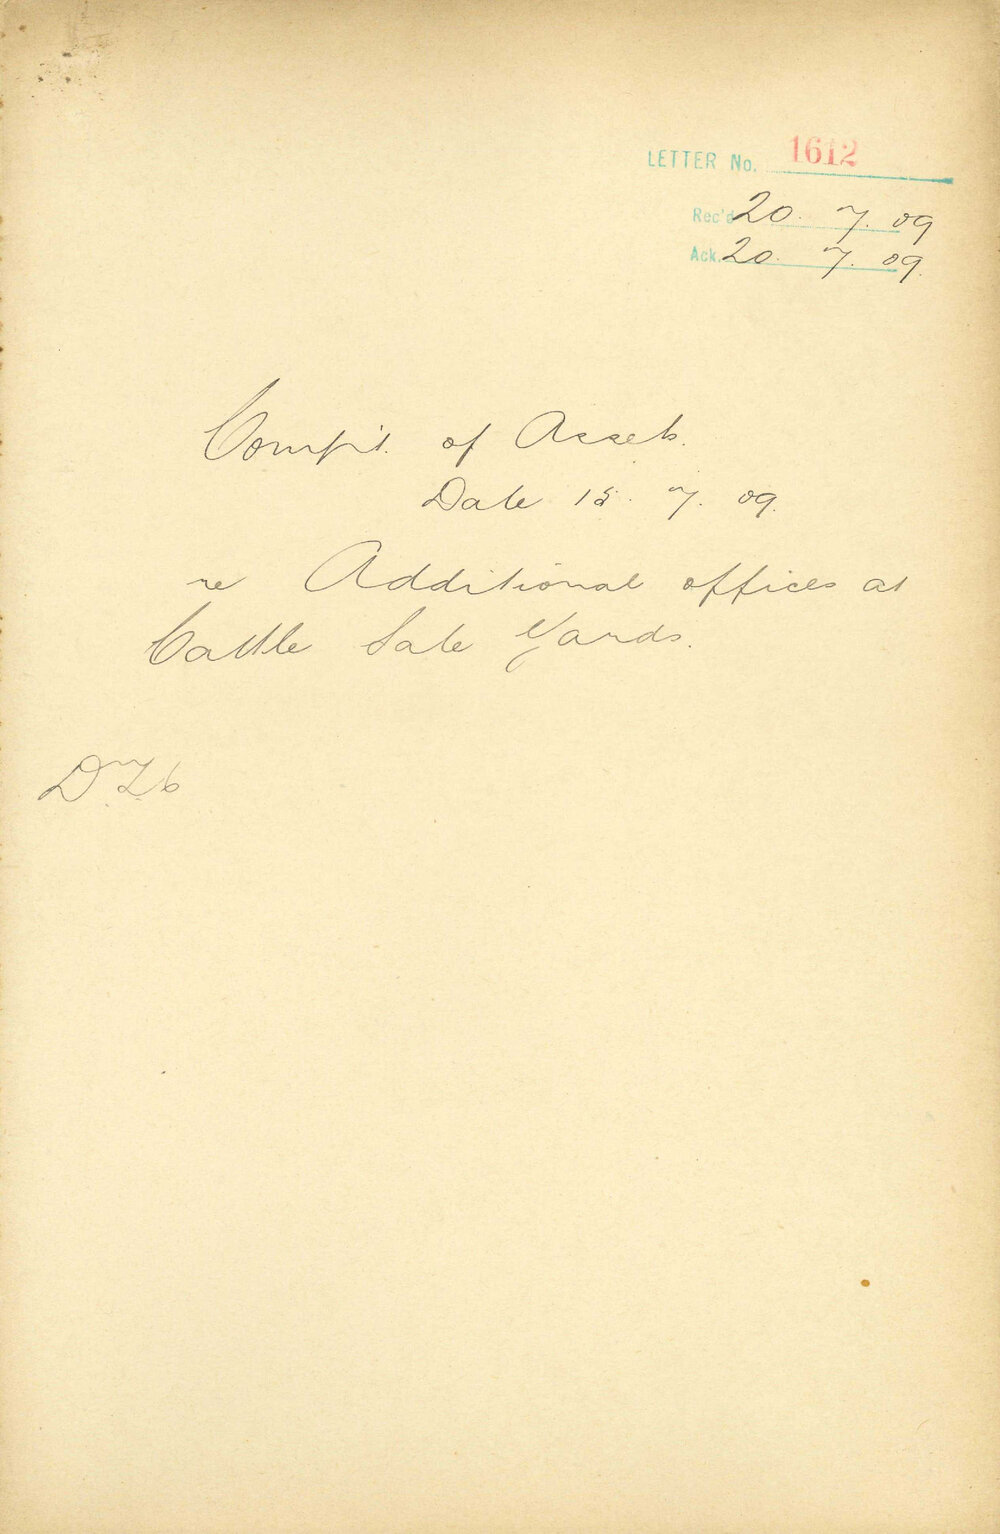 LETTER No. 1612
Rec'd 20. 7. 09
Ack. 20. 7. 09.
of Assets.
Date 15. 7. 09.
re Additional offices at
Cattle Sale Yards.